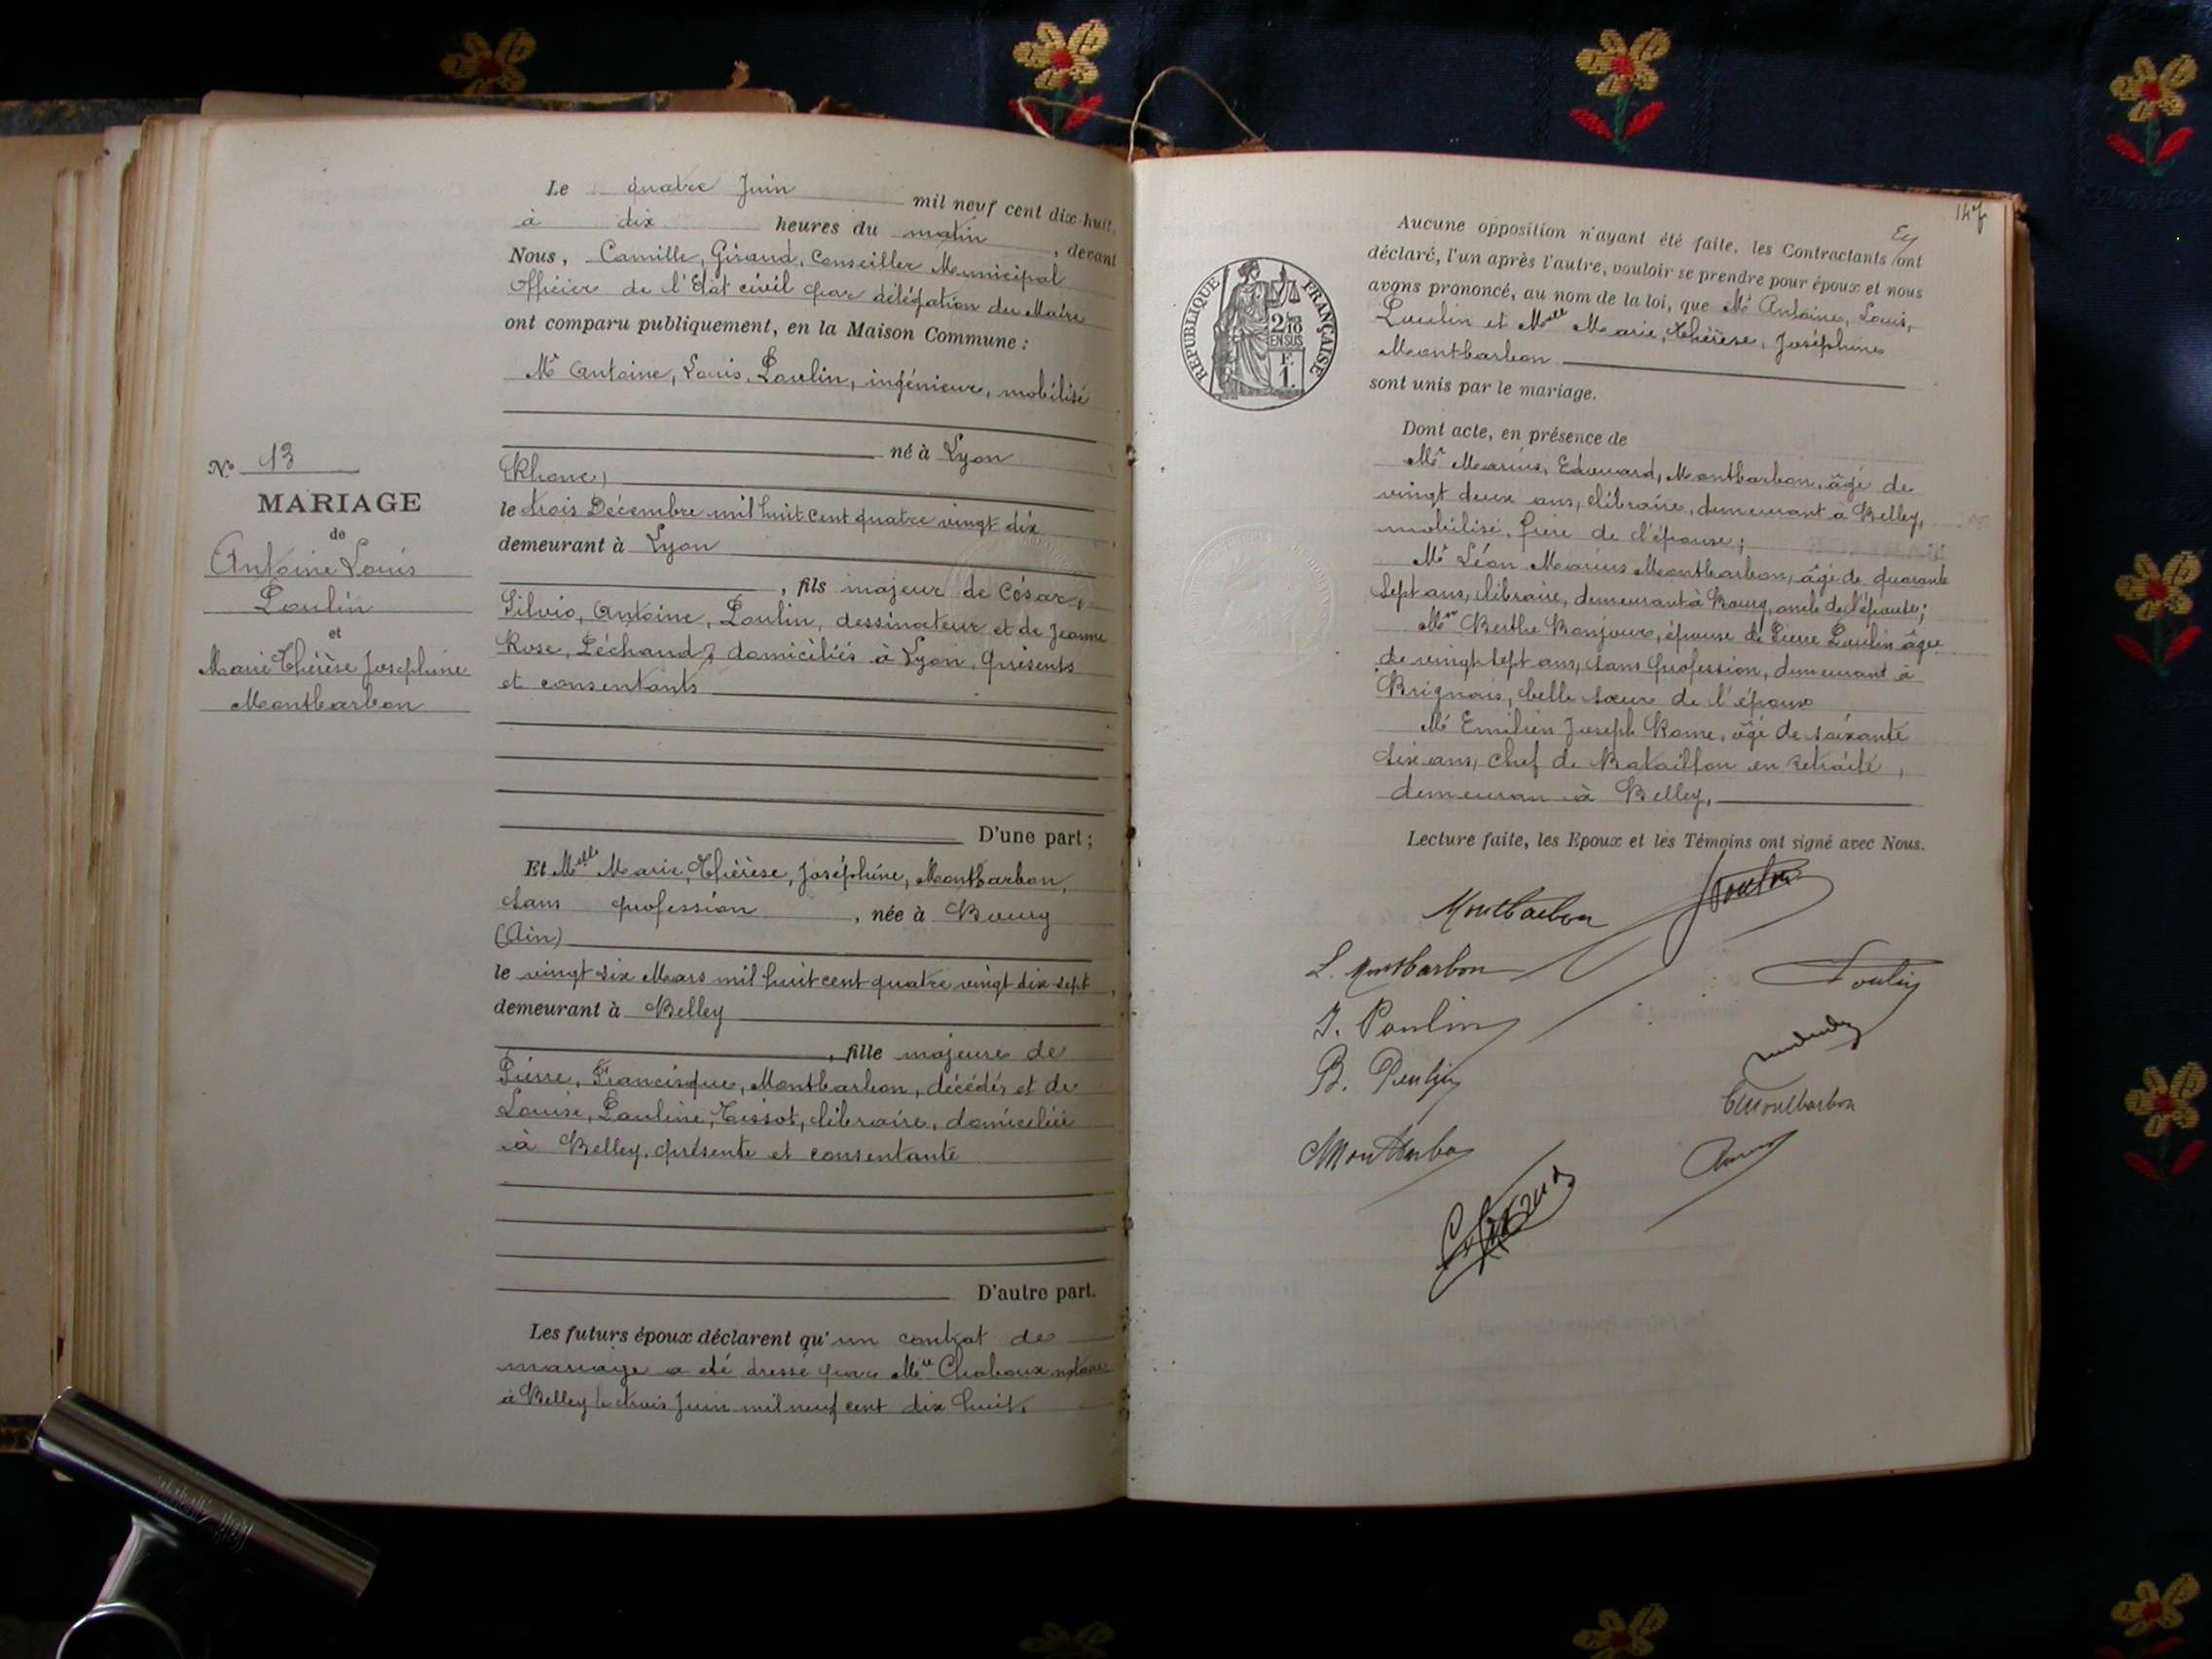 Le quatre Juin mil neuf cent dix-huit,
à dix heures du matin, devant
Nous, Camille, Girand, Conseiller Municipal
Officier de l'Etat civil par délégation du Maire
ont comparu publiquement, en la Maison Commune :
Mr Antoine, Louis, Poulin, ingénieur, mobilisé
né à Lyon
(Rhone)
le trois Décembre mil huit cent quatre vingt dix
demeurant à Lyon
, fils majeur de César,
Silvio, Antoine, Poulin, dessinateur et de Jeanne
Rose, Péchaud, domiciliés à Lyon, présents
et consentants
D'une part ;
Et Melle Marie, Thérèse, Joséphine, Montbarbon,
sans profession, née à Bourg
(Ain)
le vingt six Mars mil huit cent quatre vingt dix-sept,
demeurant à Belley
, fille majeure de
Pierre, Francisque, Montbarbon, décédé, et de
Louise, Pauline, Tissot, libraire, domiciliée
à Belley, présente et consentante
D'autre part.
Les futurs époux déclarent qu'un contrat de
mariage a été dressé par Me Chaboux notaire
à Belley le trois Juin mil neuf cent dix huit.
No 13
MARIAGE
de
Antoine Louis
Poulin
et
Marie Thérèse Josephine
Montbarbon
147
Aucune opposition n'ayant été faite, les Contractants ont
déclaré, l'un après l'autre, vouloir se prendre pour époux et nous
avons prononcé, au nom de la loi, que Mr Antoine, Louis,
Poulin et Melle Marie, Thérèse, Joséphine
Montbarbon
sont unis par le mariage.
REPUBLIQUE FRANÇAISE
2/10
EN SUS
F.
1.
Dont acte, en présence de
Mr Marius, Edouard, Montbarbon, âgé de
vingt deux ans, libraire, demeurant à Belley,
mobilisé, frère de l'épouse ;
Mr Léon Marius Montbarbon, âgé de quarante
sept ans, libraire, demeurant à Bourg, oncle de l'épouse ;
Mme Berthe Bonjour, épouse de Pierre Poulin âgée
de vingt sept ans, sans profession, demeurant à
Brignais, belle sœur de l'époux
Mr Emilien Joseph Rome, âgé de soixante
six ans, Chef de Bataillon en retraite,
demeuran à Belley,
Lecture faite, les Epoux et les Témoins ont signé avec Nous.
Montbarbon
Poulin
L. Montbarbon
Poulin
J. Poulin
B. Poulin
Montbarbon